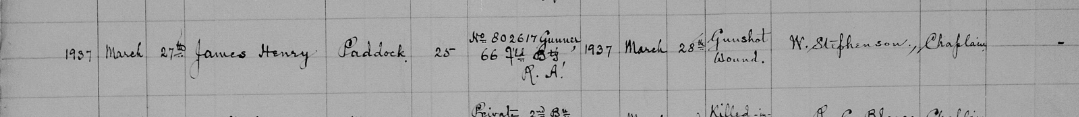 1937 March 27th James Henry Paddock. 25 No 802617 Gunner, 1937 March 28th Gunshot W. Stephenson, Chaplain -
66 Fd Bty Wound.
R. A.
Private 2nd Bn Killed in